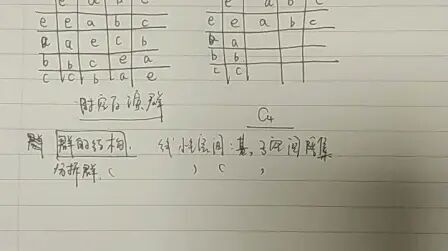 e a b c
e e a b c
a a e c b
b b c e a
c c b a e
e a b c
e e a b c
a a
b b
c c
对应 群
C₄
群的结构. 线性空间:基,子空间 陪集
分拆群. ( ) ( ,